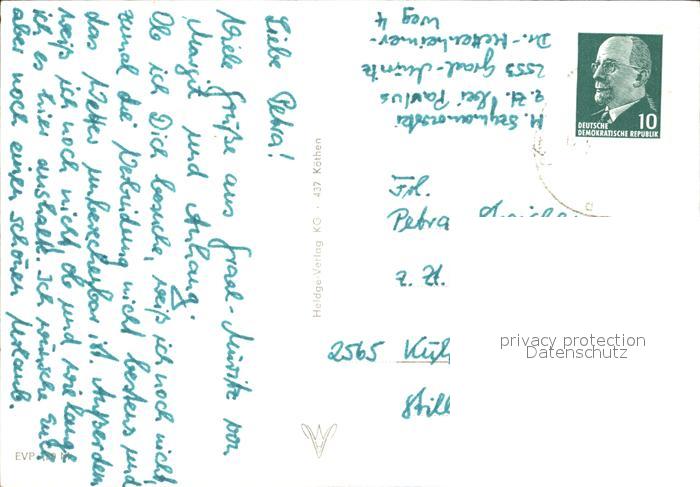 Liebe Petra!
Viele Grüße aus Graal-Müritz von
Margit und Anhang.
Ob ich Dich besuche, weiß ich noch nicht,
zumal die Verbindung nicht bestens und
das Wetter unberechenbar ist. Außerdem
weiß ich noch nicht, ob und wie lange
ich es hier aushalte. Ich wünsche Euch
aber noch einen schönen Urlaub.
M. Szymanowski
z. Zt. bei Paulus
2553 Graal-Müritz
Dr.-Hettenheimer-
Weg 4
DEUTSCHE
DEMOKRATISCHE REPUBLIK
10
Frl.
Petra
z. Zt.
2565 Küh
Still
Heldge-Verlag KG · 437 Köthen
EVP
privacy protection
Datenschutz